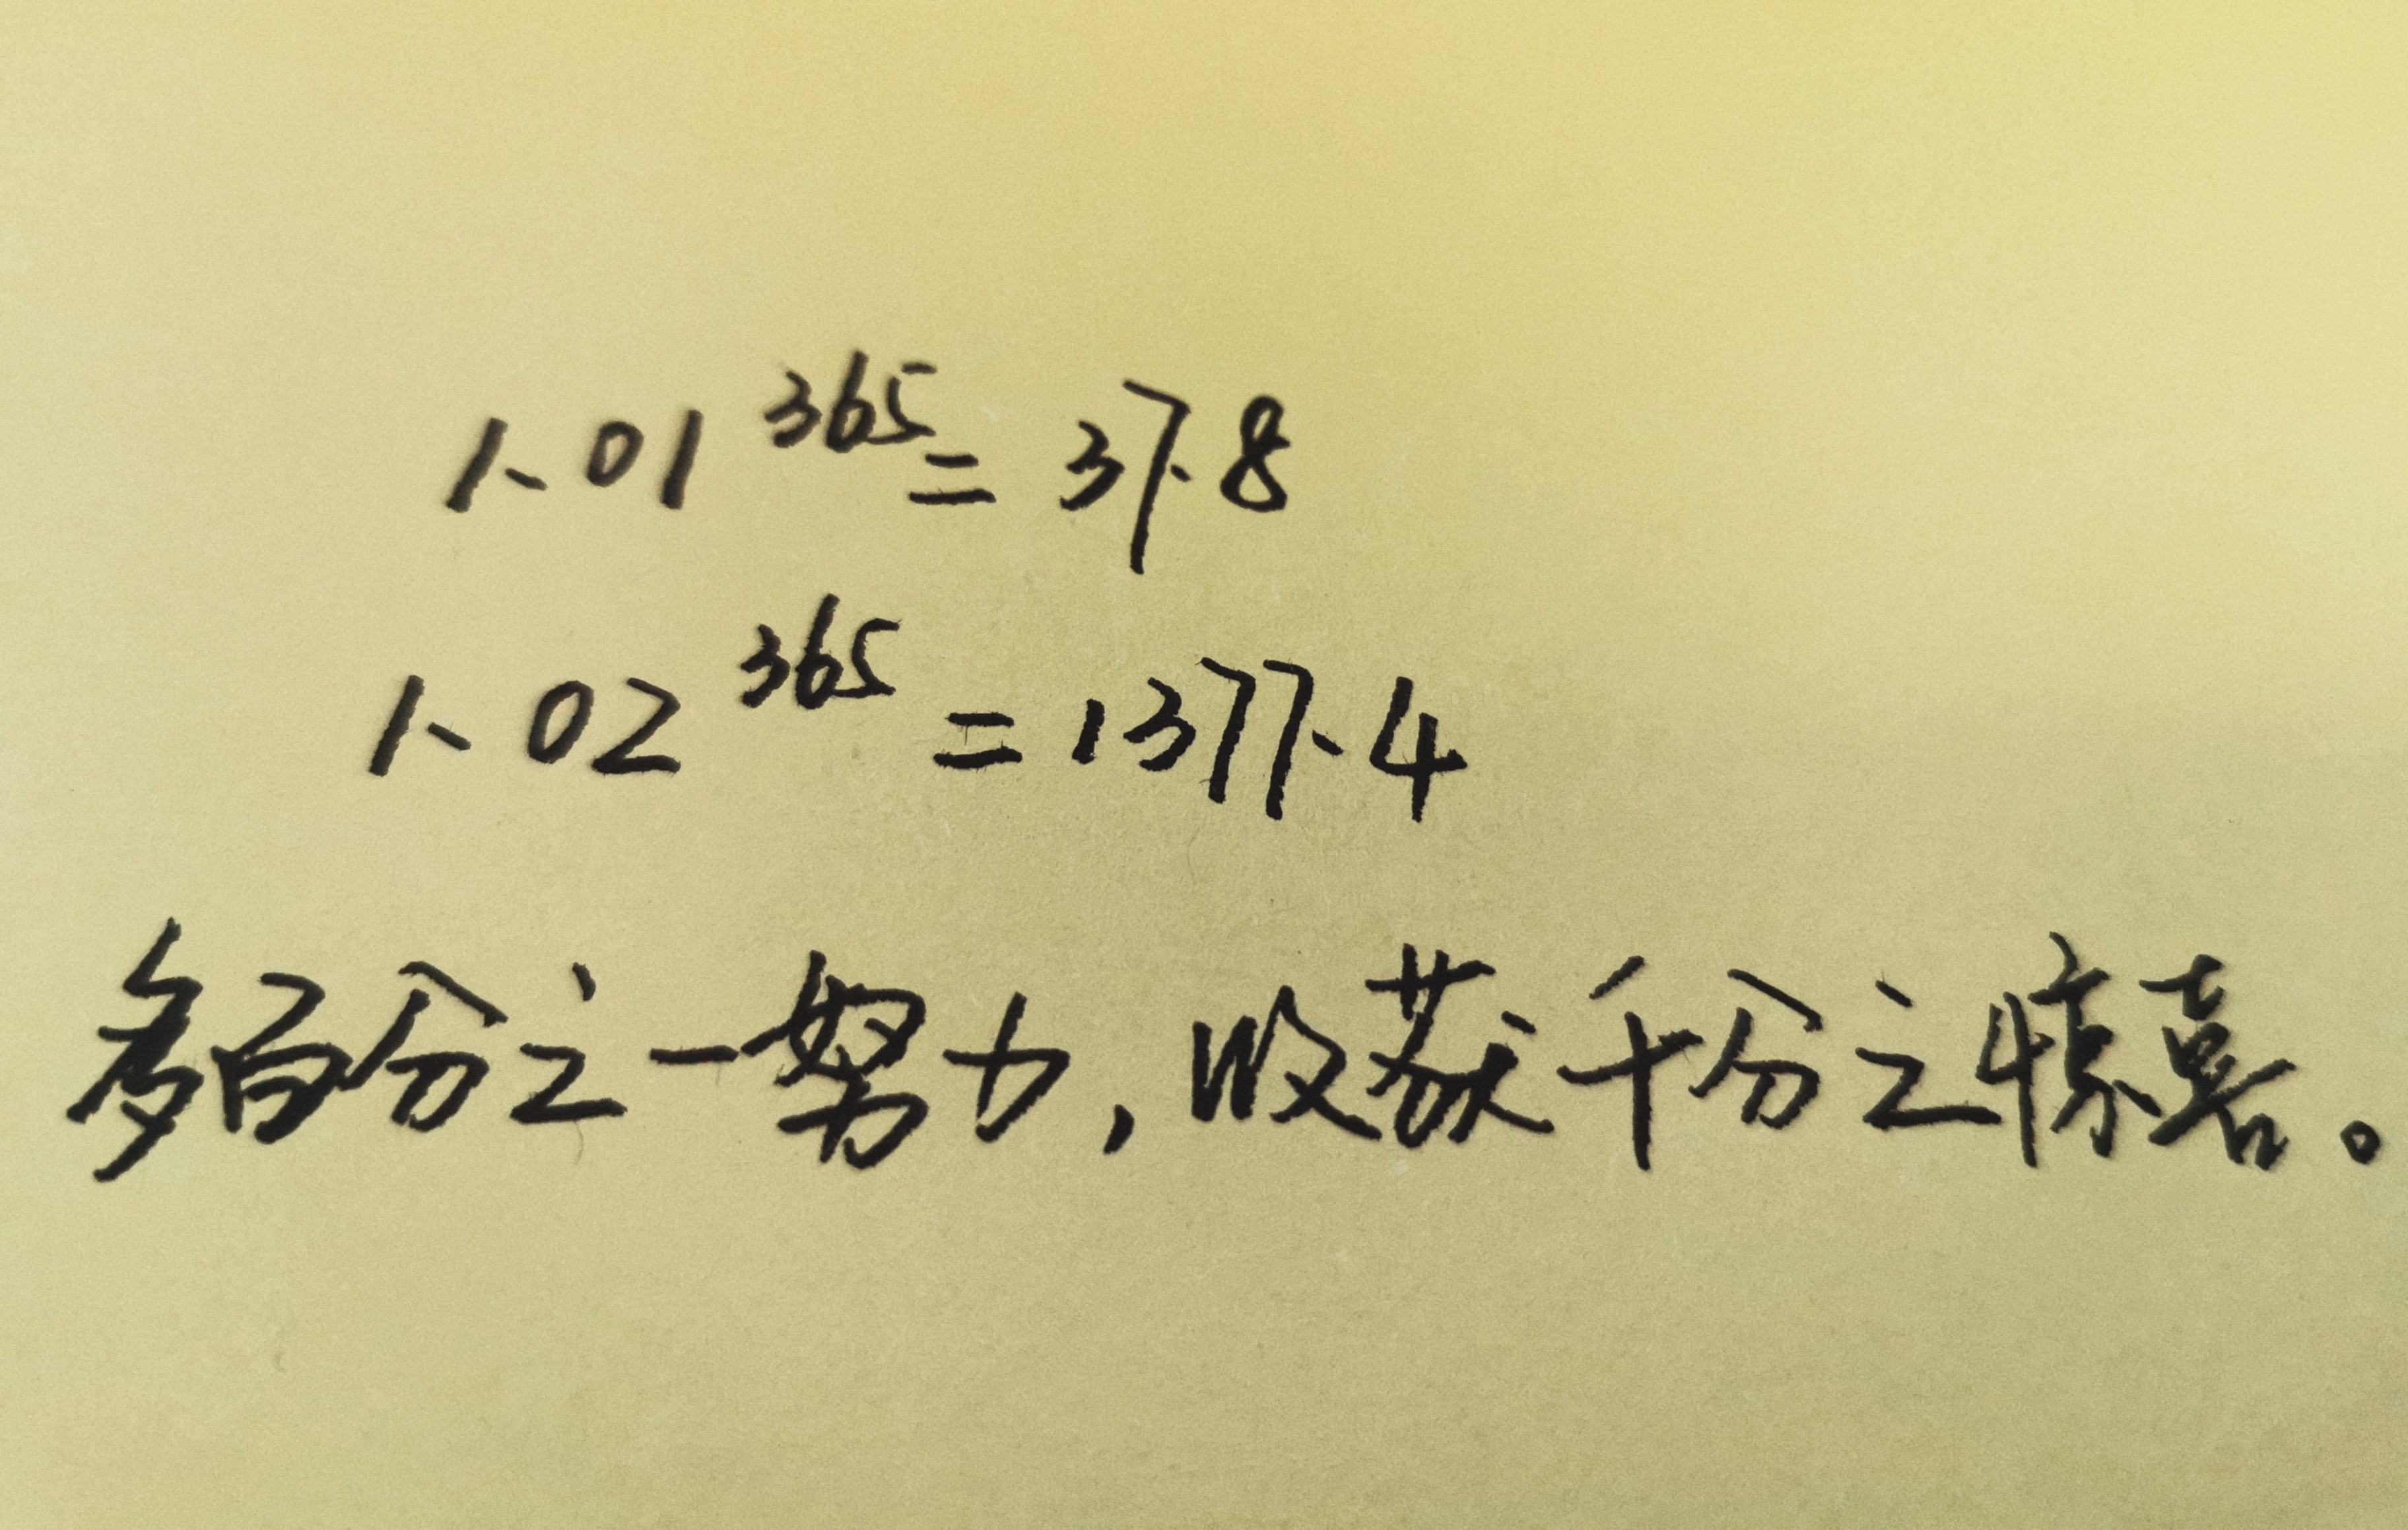 1.01^365 = 37.8
1.02^365 = 1377.4
多百分之一努力,收获千分之惊喜。